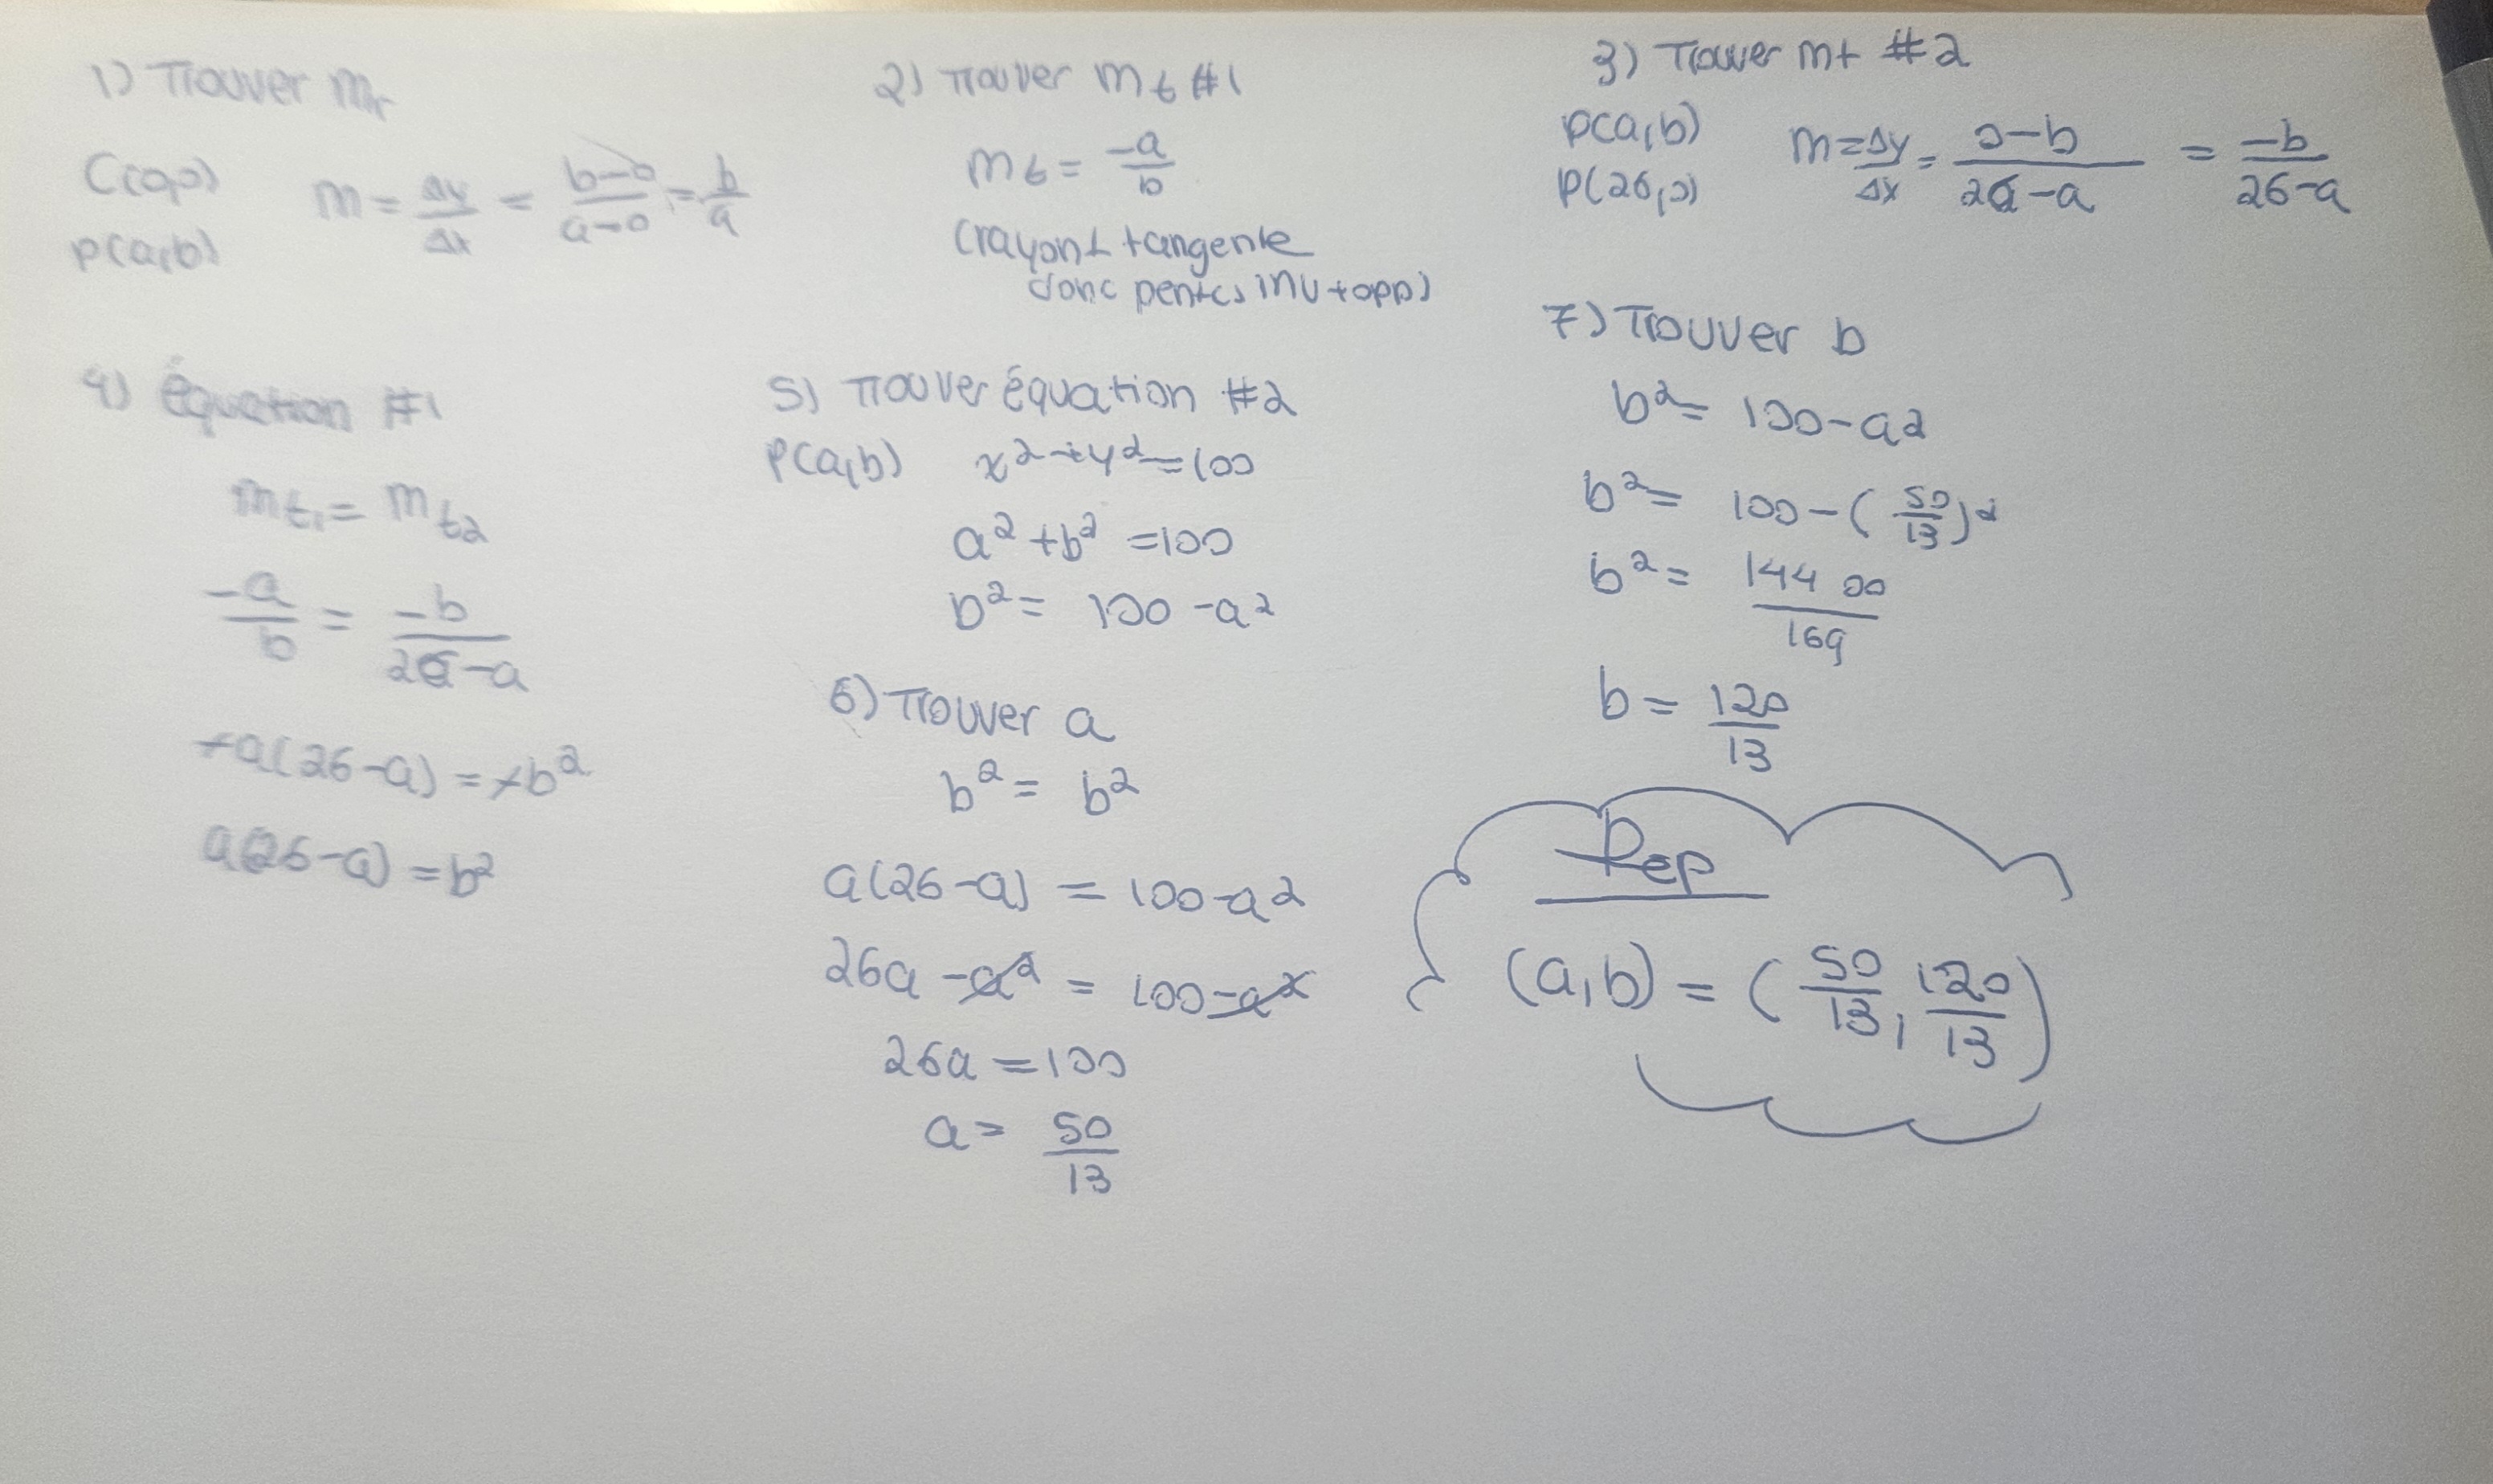 1) Trouver mr
C(0,0)
P(a,b)
m = Δy/Δx = b-0/a-0 = b/a
2) Trouver mt #1
mt = -a/b
(rayon ⊥ tangente
donc pentes inv + opp)
3) Trouver mt #2
P(a,b)
P(26,0)
m = Δy/Δx = 0-b/26-a = -b/26-a
4) Équation #1
mt1 = mt2
-a/b = -b/26-a
-a(26-a) = -b²
a(26-a) = b²
5) Trouver équation #2
P(a,b) x²+y²=100
a²+b²=100
b² = 100-a²
6) Trouver a
b² = b²
a(26-a) = 100-a²
26a-a² = 100-a²
26a = 100
a = 50/13
7) Trouver b
b² = 100-a²
b² = 100-(50/13)²
b² = 14400/169
b = 120/13
Rep
(a,b) = (50/13, 120/13)